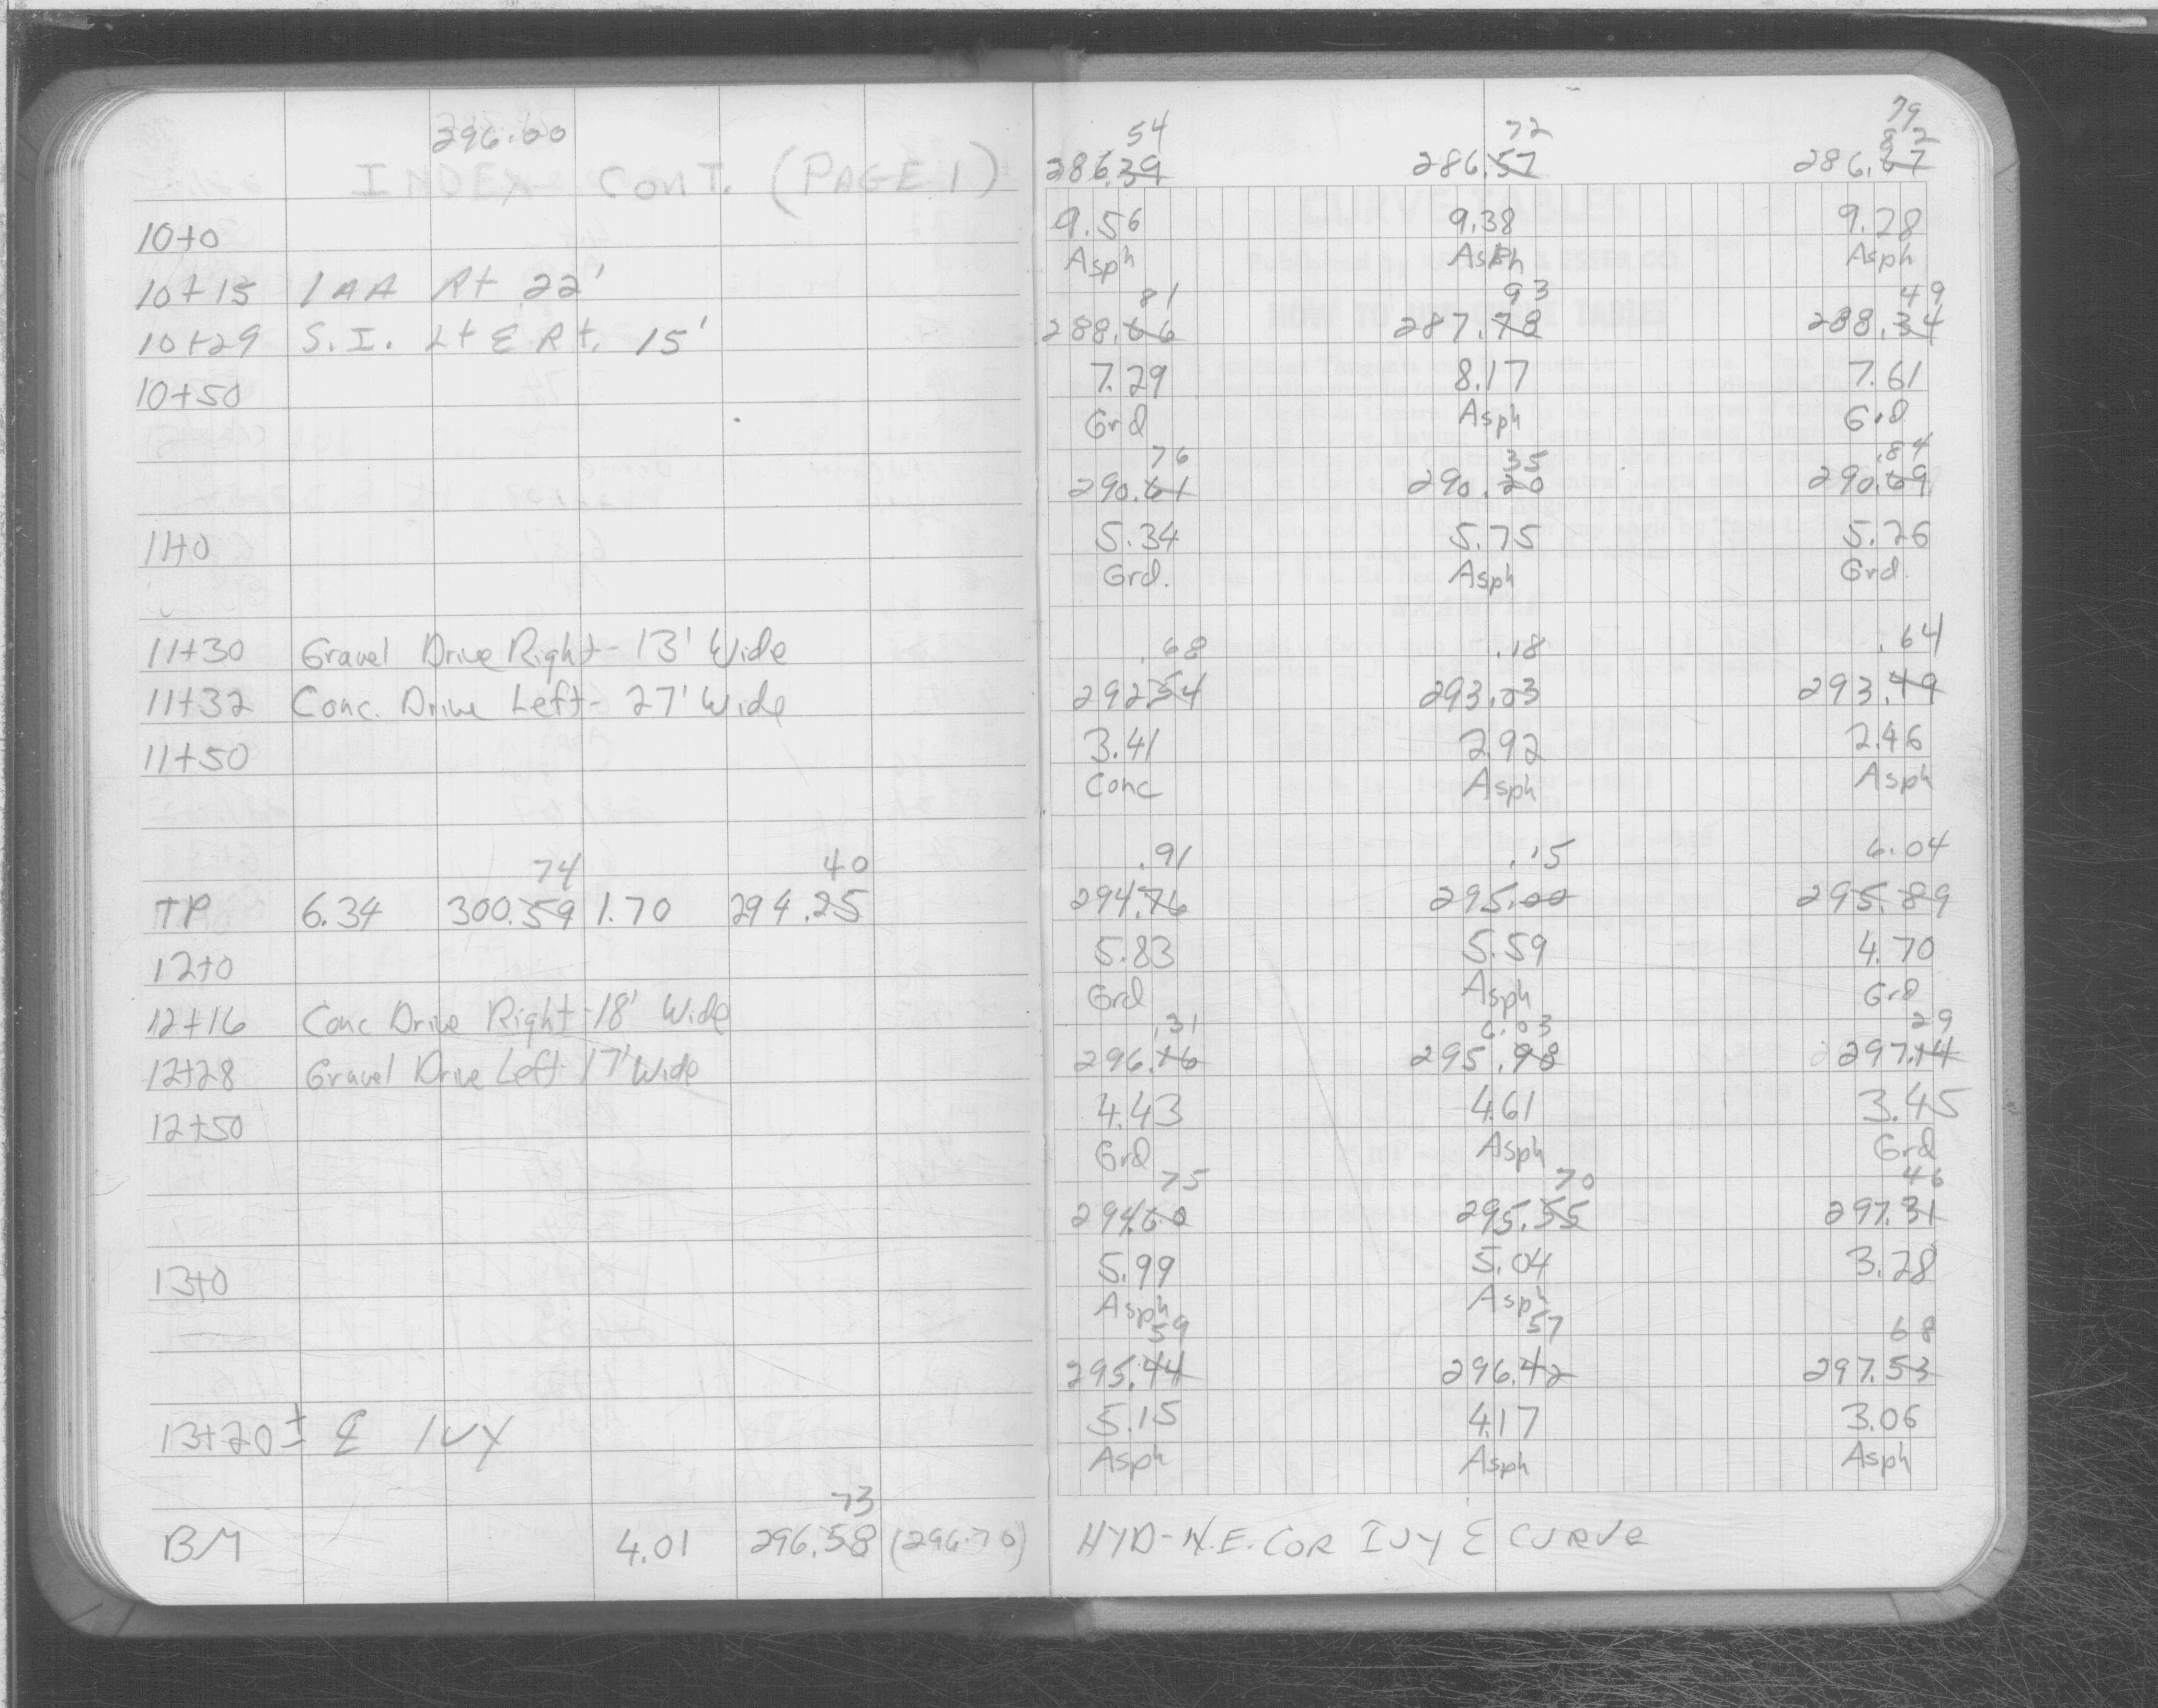 296.00
INDEX CONT. (PAGE 1)
10+0
10+15 1AA Rt 22'
10+29 S.I. Lt & Rt. 15'
10+50
11+0
11+30 Gravel Drive Right - 13' Wide
11+32 Conc. Drive Left - 27' Wide
11+50
74 40
TP 6.34 300.59 1.70 294.25
12+0
12+16 Conc Drive Right - 18' Wide
12+28 Gravel Drive Left - 17' Wide
12+50
13+0
13+20± ℄ IVY
73
BM 4.01 296.58 (296.70)
79
54 72 82
286.39 286.57 286.67
9.56 9.38 9.28
Asph Asph Asph
81 93 49
288.66 287.78 288.34
7.29 8.17 7.61
Grd Asph Grd
76 35 .84
290.61 290.20 290.69
5.34 5.75 5.26
Grd. Asph Grd.
.68 .18 .64
292.54 293.03 293.49
3.41 2.92 2.46
Conc Asph Asph
.91 .15 6.04
294.76 295.00 295.89
5.83 5.59 4.70
Grd Asph Grd
.31 6.03 29
296.16 295.98 297.14
4.43 4.61 3.45
Grd Asph Grd
75 70 46
294.60 295.55 297.31
5.99 5.04 3.28
Asph Asph
59 57 68
295.44 296.42 297.53
5.15 4.17 3.06
Asph Asph Asph
HYD - N.E. COR IVY & CURVE